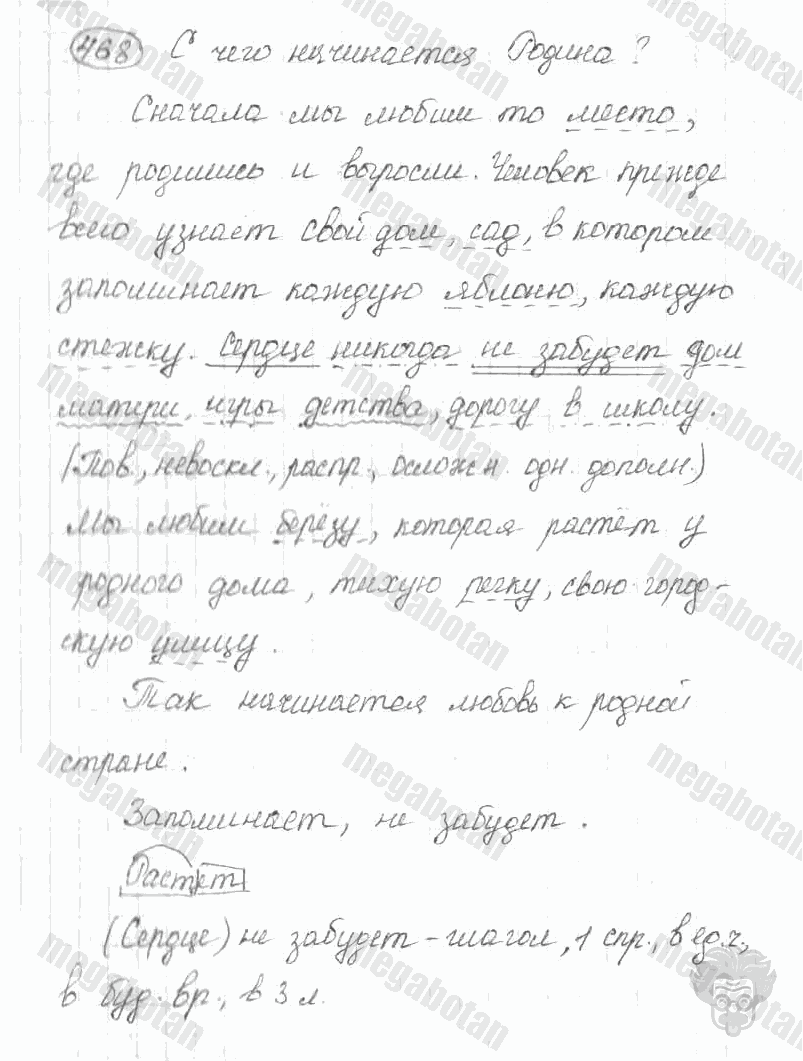 468 С чего начинается Родина?
Сначала мы любим то место,
где родились и выросли. Человек прежде
всего узнаёт свой дом, сад, в котором
запоминает каждую яблоню, каждую
стежку. Сердце никогда не забудет дом
матери, игры детства, дорогу в школу.
(Пов., невоскл., распр., осложн. одн. дополн.)
Мы любим берёзу, которая растёт у
родного дома, тихую речку, свою город-
скую улицу.
Так начинается любовь к родной
стране.
Запоминает, не забудет.
Растет
(Сердце) не забудет - глагол, 1 спр., в ед.ч.,
в буд. вр., в 3 л.
megabotan